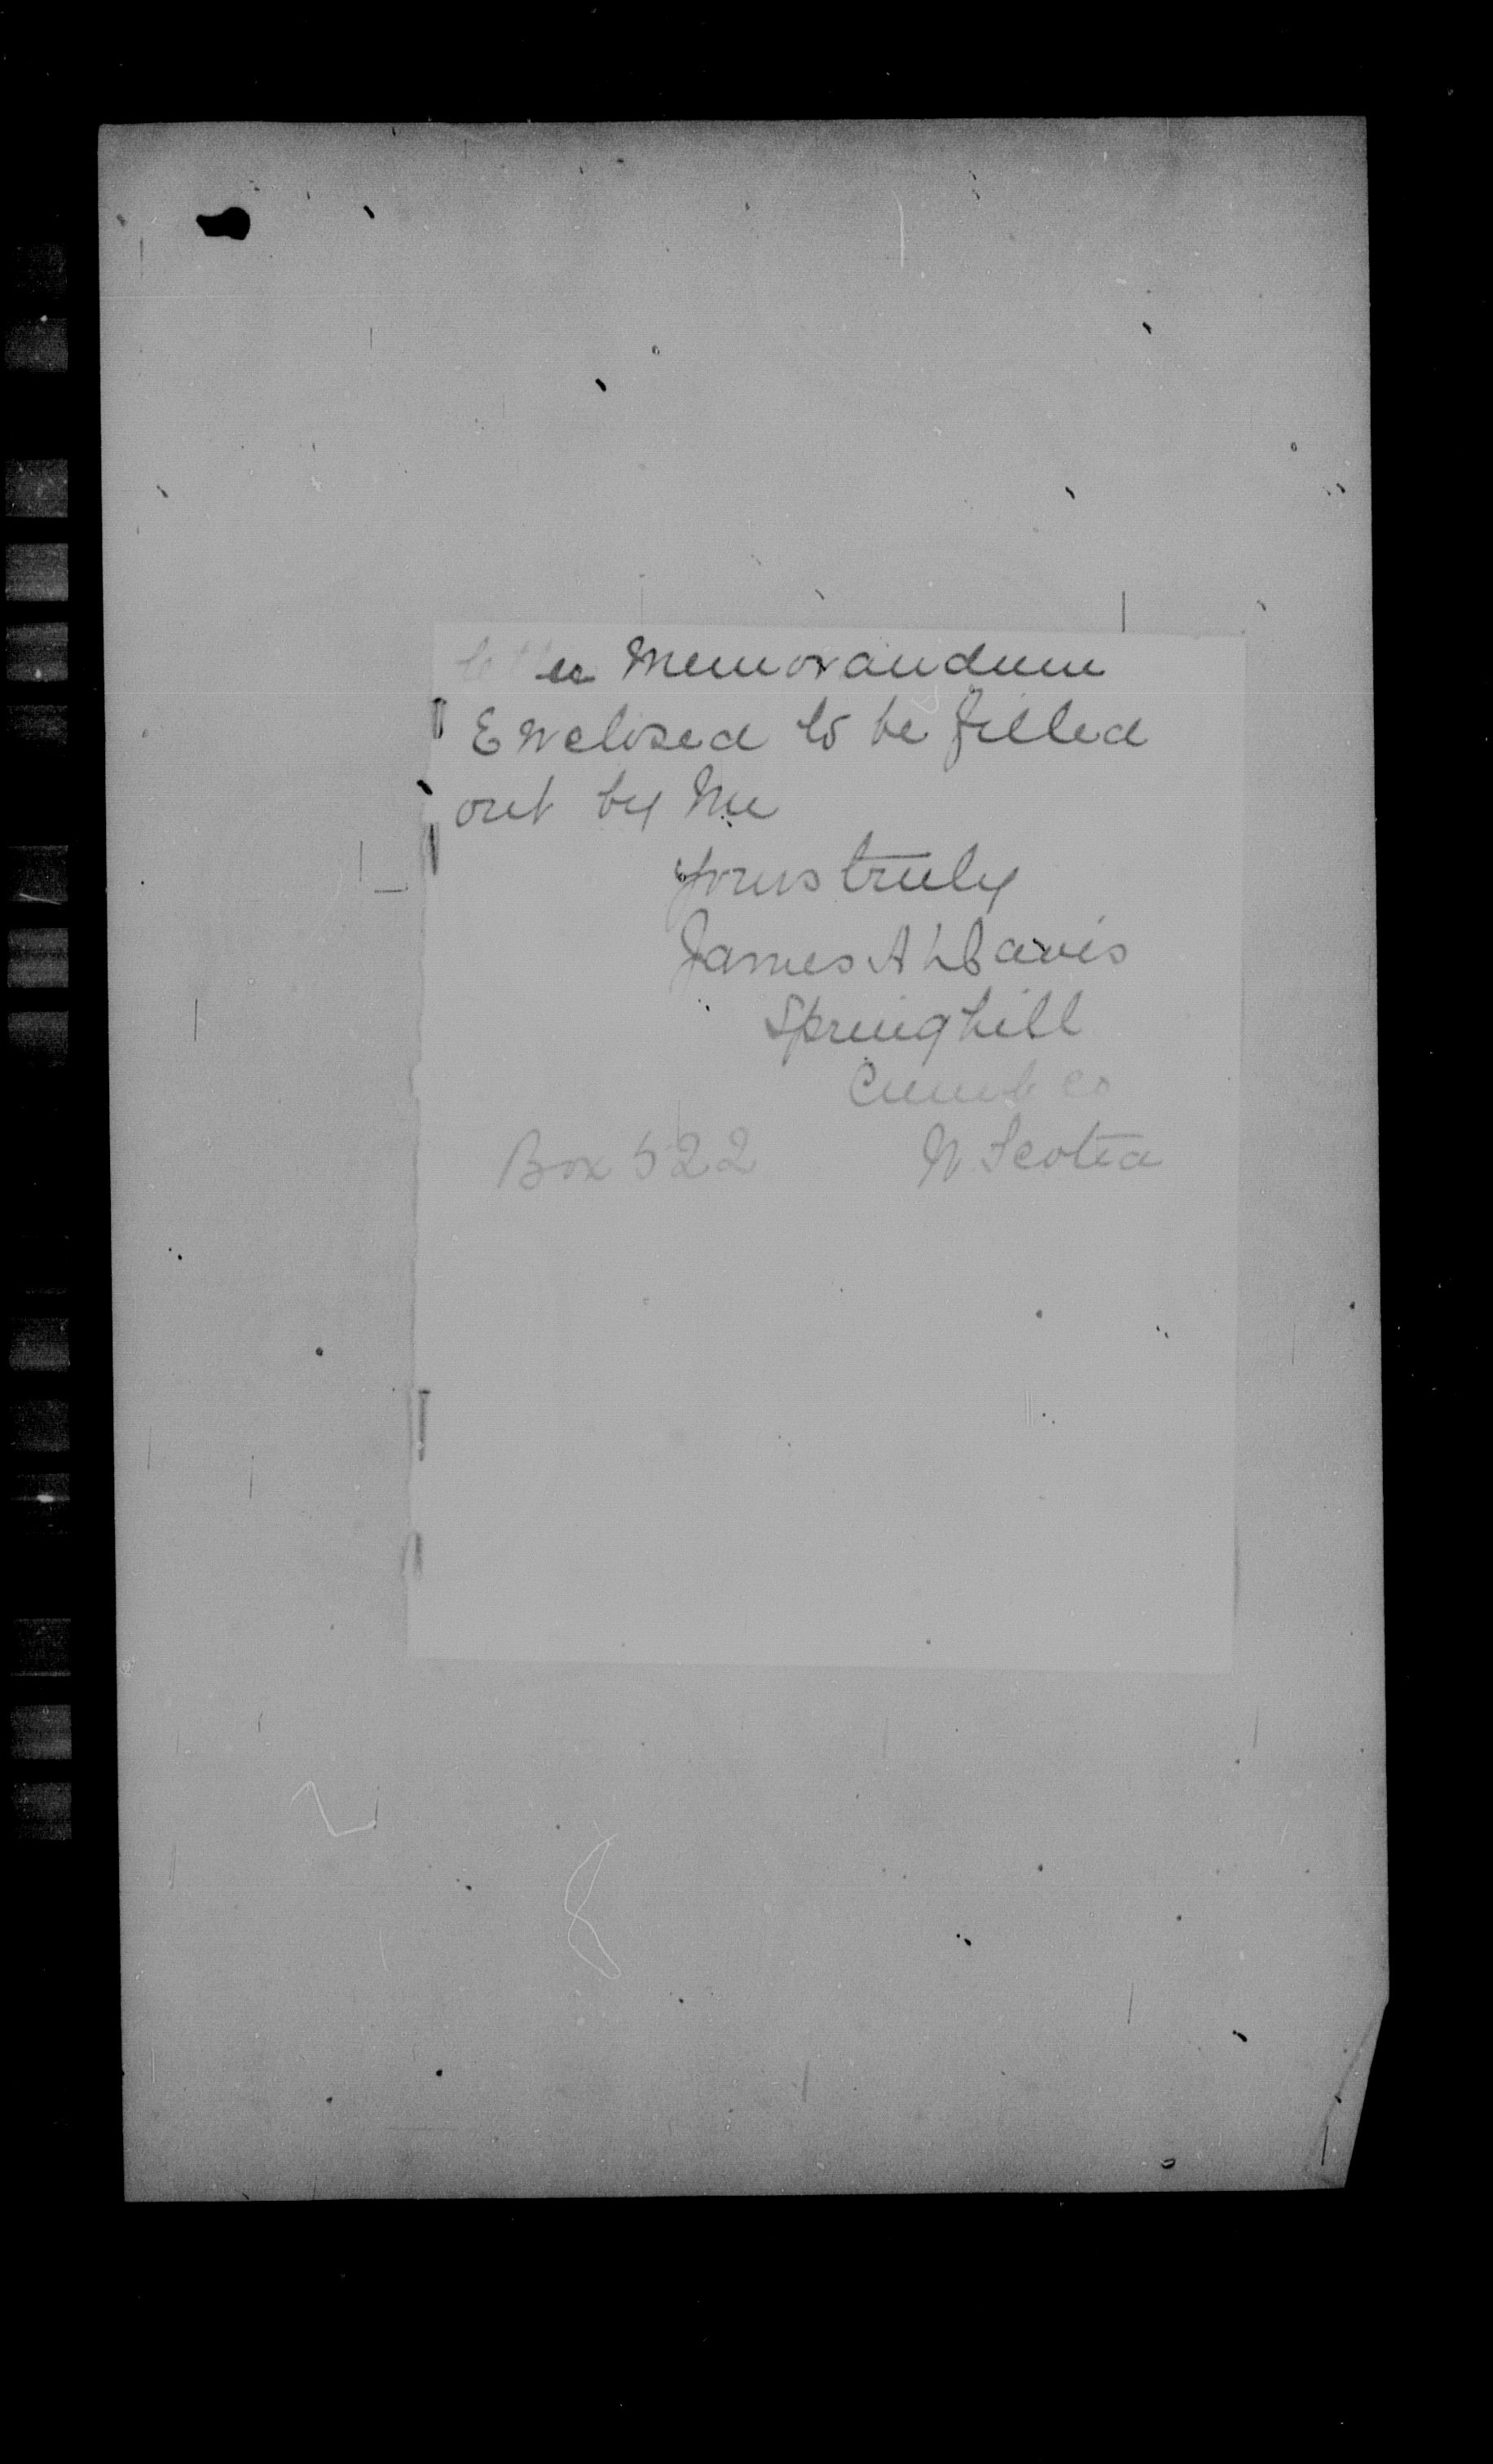 Memorandum
Enclosed to be filled
out by Me
yours truly
James A Davis
Springhill
Cumb Co
Box 522 N Scotia